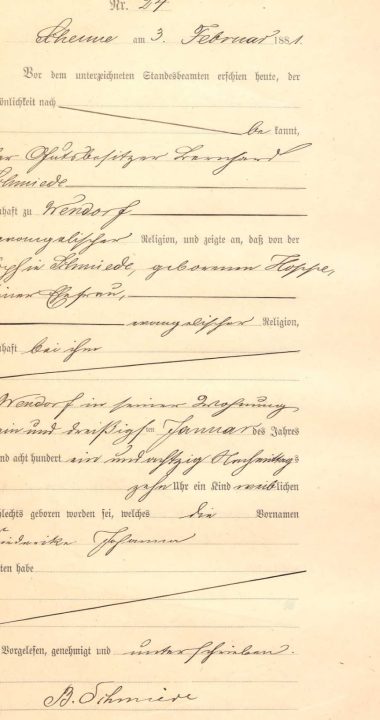 Nr. 24
am 3. Februar 1881.
Vor dem unterzeichneten Standesbeamten erschien heute, der
önlichkeit nach
be kannt,
er Gutsbesitzer Bernhard
Schmiede
nhaft zu Wendorf
evangelischer Religion, und zeigte an, daß von der
Sophie Schmiede, geborenen Hoppe,
einer Ehefrau,
evangelischer Religion,
nhaft bei ihm
Wendorf in seiner Wohnung
ein und dreißigsten Januar des Jahres
nd acht hundert ein und achtzig Nachmittags
zehn Uhr ein Kind weiblichen
hlechts geboren worden sei, welches die Vornamen
iederike Johanna
lten habe
Vorgelesen, genehmigt und unterschrieben.
B. Schmiede